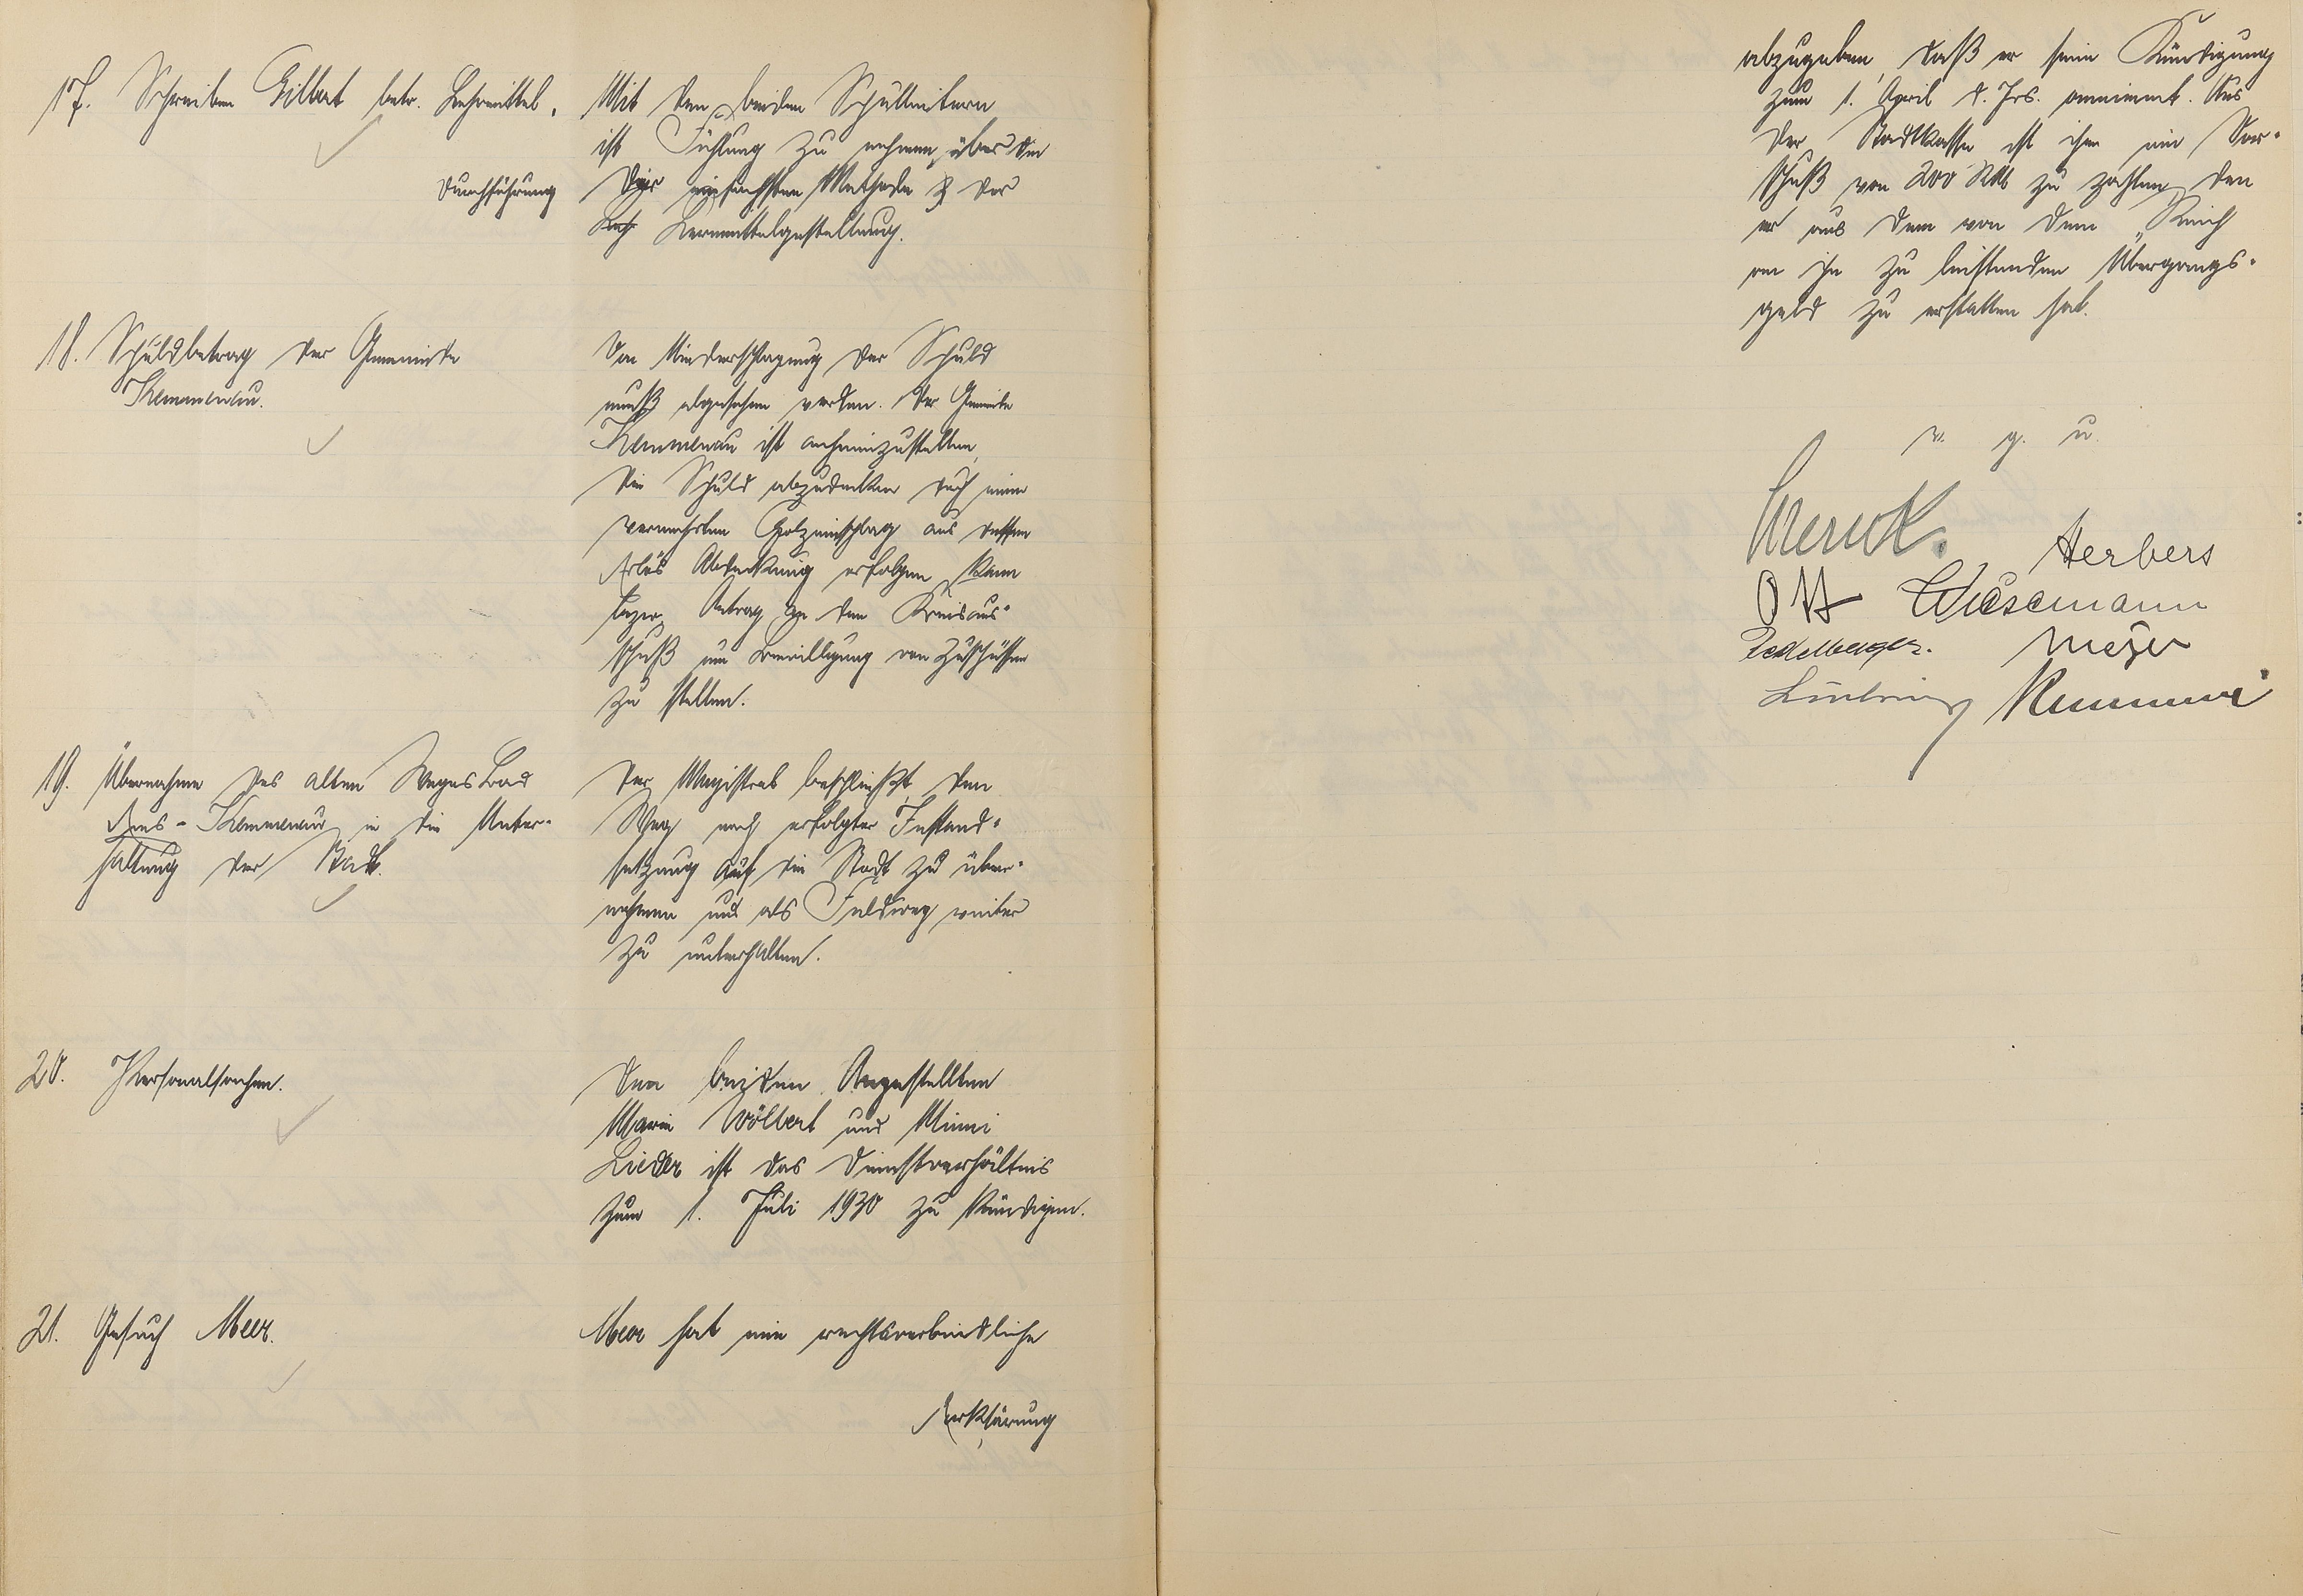 17. Schreiben Gilbert betr. Lehrmittel.
Mit den beiden Schulleitern
ist Fühlung zu nehmen über die
Durchführung der einfachsten Methode der
Lernmittelgestellung.
18. Schuldbetrag der Gemeinde
Kemmenau.
Von Niederschlagung der Schuld
muß abgesehen werden. Der Gemeinde
Kemmenau ist anheimzustellen,
die Schuld abzudecken durch einen
vermehrten Holzeinschlag aus dessen
Erlös Abdeckung erfolgen kann
bezw. Antrag an den Kreisaus-
schuß um Bewilligung von Zuschüssen
zu stellen.
19. Übernahme des alten Weges Bad
Ems - Kemmenau in die Unter-
haltung der Stadt.
Der Magistrat beschließt, den
Weg nach erfolgter Instand-
setzung auf die Stadt zu über-
nehmen und als Feldweg weiter
zu unterhalten.
20. Personalsachen.
Den beiden Angestellten
Marie Wölbert und Minni
Lieder ist das Dienstverhältnis
zum 1. Juli 1930 zu kündigen.
21. Gesuch Meer.
Meer hat eine rechtsverbindliche
Erklärung
abzugeben, daß er seine Kündigung
zum 1. April d. Jrs. annimmt. Aus
der Stadtkasse ist ihm ein Vor-
schuß von 200 RM zu zahlen, den
er aus dem von dem Reich
an ihn zu leistenden Übergangs-
geld zu erstatten hat.
v. g. u.
Herbers
Ott Wiesemann
Meyer